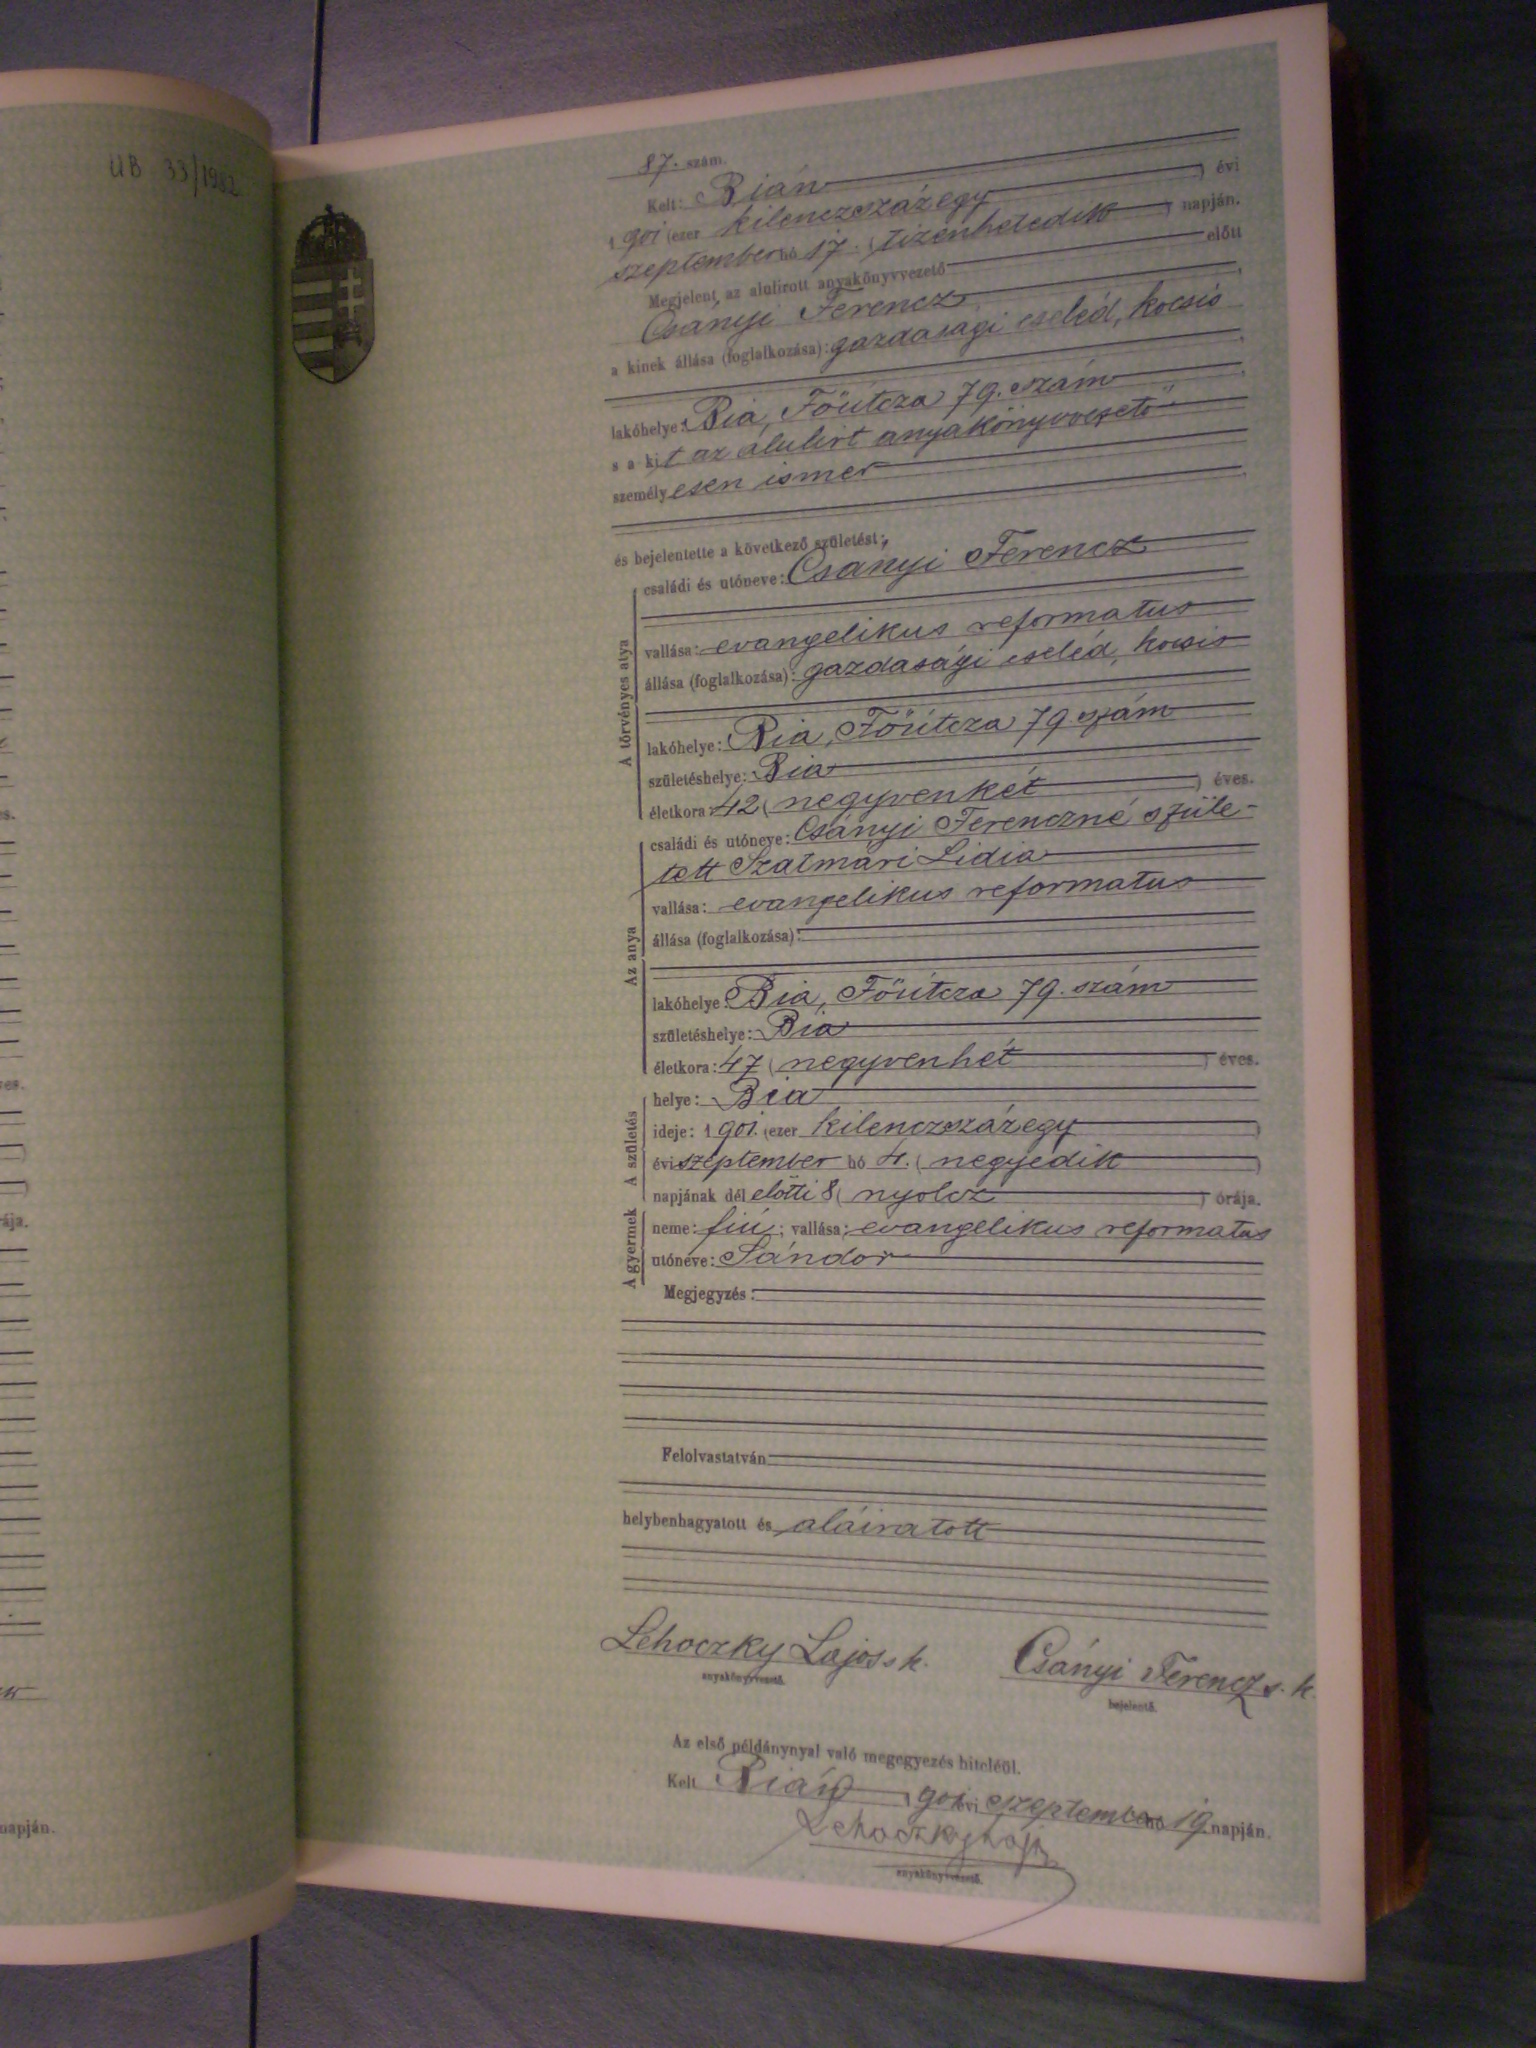 UB 33/1982
87. szám.
Kelt: Bián
1901 (ezer kilenczszázegy) évi
szeptember hó 17. (tizenhetedik) napján.
Megjelent az alulirott anyakönyvvezető előtt
Csányi Ferencz
a kinek állása (foglalkozása): gazdasági cseléd, kocsis
lakóhelye: Bia, Főútcza 79. szám
s a kit az alulirt anyakönyvvezető
személyesen ismer
és bejelentette a következő születést:
A törvényes atya
családi és utóneve: Csányi Ferencz
vallása: evangelikus reformatus
állása (foglalkozása): gazdasági cseléd, kocsis
lakóhelye: Bia, Főútcza 79. szám
születéshelye: Bia
életkora: 42 (negyvenkét) éves.
Az anya
családi és utóneve: Csányi Ferenczné szüle-
tett Szatmári Lidia
vallása: evangelikus reformatus
állása (foglalkozása):
lakóhelye: Bia, Főútcza 79. szám
születéshelye: Bia
életkora: 47 (negyvenhét) éves.
A születés
helye: Bia
ideje: 1901. (ezer kilenczszázegy)
évi szeptember hó 4. (negyedik)
napjának dél előtti 8 (nyolcz) órája.
A gyermek
neme: fiú; vallása: evangelikus reformatus
utóneve: Sándor
Megjegyzés:
Felolvastatván
helybenhagyatott és aláiratott
Lehoczky Lajos s. k. Csányi Ferencz s. k.
anyakönyvvezető. bejelentő.
Az első példánynyal való megegyezés hiteléül.
Kelt Bián, 901 évi szeptember hó 19. napján.
Lehoczky Lajos
anyakönyvvezető.
es.
ves.
rája.
napján.